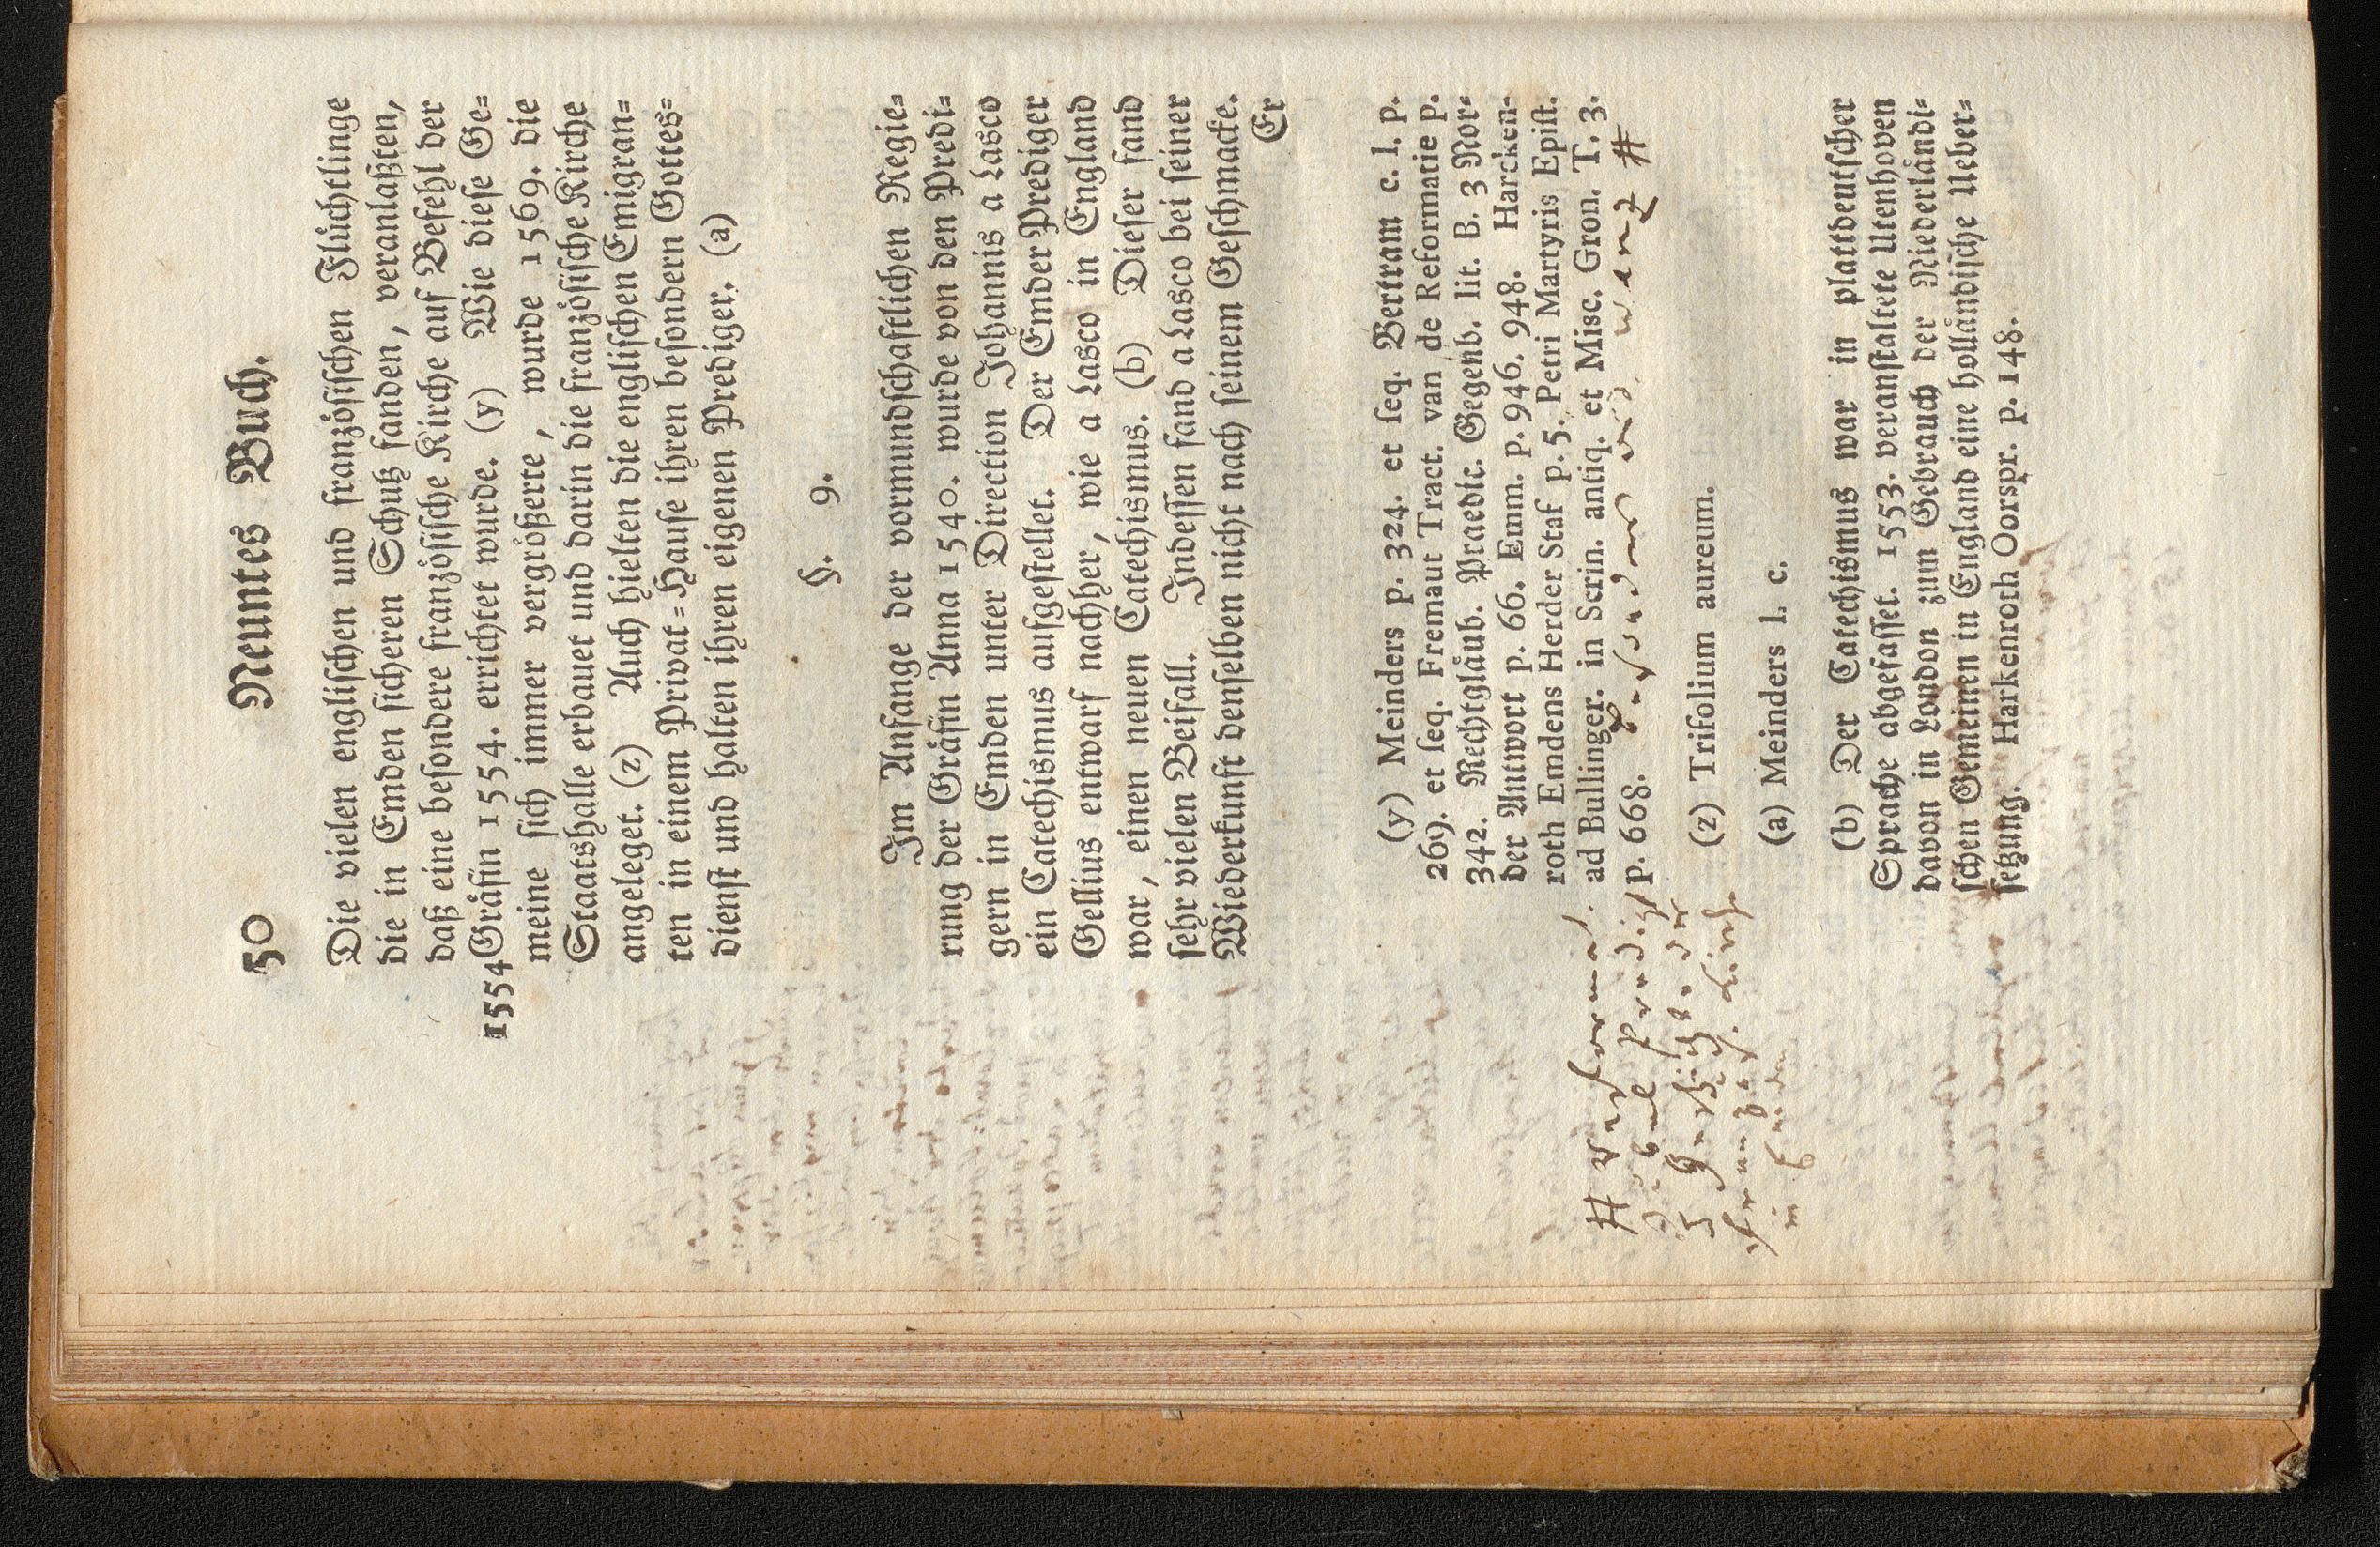 50 Neuntes Buch.
Die vielen englischen und französischen Flüchtlinge
die in Emden sicheren Schutz fanden, veranlaßten,
daß eine besondere französische Kirche auf Befehl der
1554 Gräfin 1554. errichtet wurde. (y) Wie diese Ge=
meine sich immer vergrößerte, wurde 1569. die
Staatshalle erbauet und darin die französische Kirche
angeleget. (z) Auch hielten die englischen Emigran=
ten in einem Privat=Hause ihren besondern Gottes=
dienst und halten ihren eigenen Prediger. (a)
§. 9.
Im Anfange der vormundschaftlichen Regie=
rung der Gräfin Anna 1540. wurde von den Predi=
gern in Emden unter Direction Johannis a Lasco
ein Catechismus aufgestellet. Der Emder Prediger
Gellius entwarf nachher, wie a Lasco in England
war, einen neuen Catechismus. (b) Dieser fand
sehr vielen Beifall. Indessen fand a Lasco bei seiner
Wiederkunft denselben nicht nach seinem Geschmacke.
Er
(y) Meinders p. 324. et seq. Bertram c. l. p.
269. et seq. Fremaut Tract. van de Reformatie p.
342. Rechtgläub. Praedic. Gegenb. lit. B. 3 Nor=
der Antwort p. 66. Emm. p. 946. 948. Harcken-
roth Emdens Herder Staf p. 5. Petri Martyris Epist.
ad Bullinger. in Scrin. antiq. et Misc. Gron. T. 3.
p. 668.
(z) Trifolium aureum.
(a) Meinders l. c.
(b) Der Catechismus war in plattdeutscher
Sprache abgefasset. 1553. veranstaltete Utenhoven
davon in London zum Gebrauch der Niederländi=
schen Gemeinen in England eine holländische Ueber=
setzung. Harkenroth Oorspr. p. 148.
in Emden